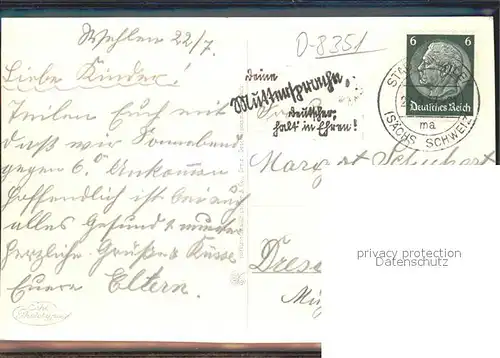 Wehlen 22/7.
D-8351
Liebe Kinder!
Teilen Euch mit
daß wir Sonnabend
gegen 6° Ankommen
hoffendlich ist bei euch
alles Gesund & munter
Herzliche Grüße & Küsse
Euere Eltern.
Echte
Photographie
deine
Muttersprache,
deutscher,
halt in Ehren!
6 6
Deutsches Reich
STA
(SÄCHS SCHWEIZ)
ma
Margaret Schubert
Dres
privacy protection
Datenschutz